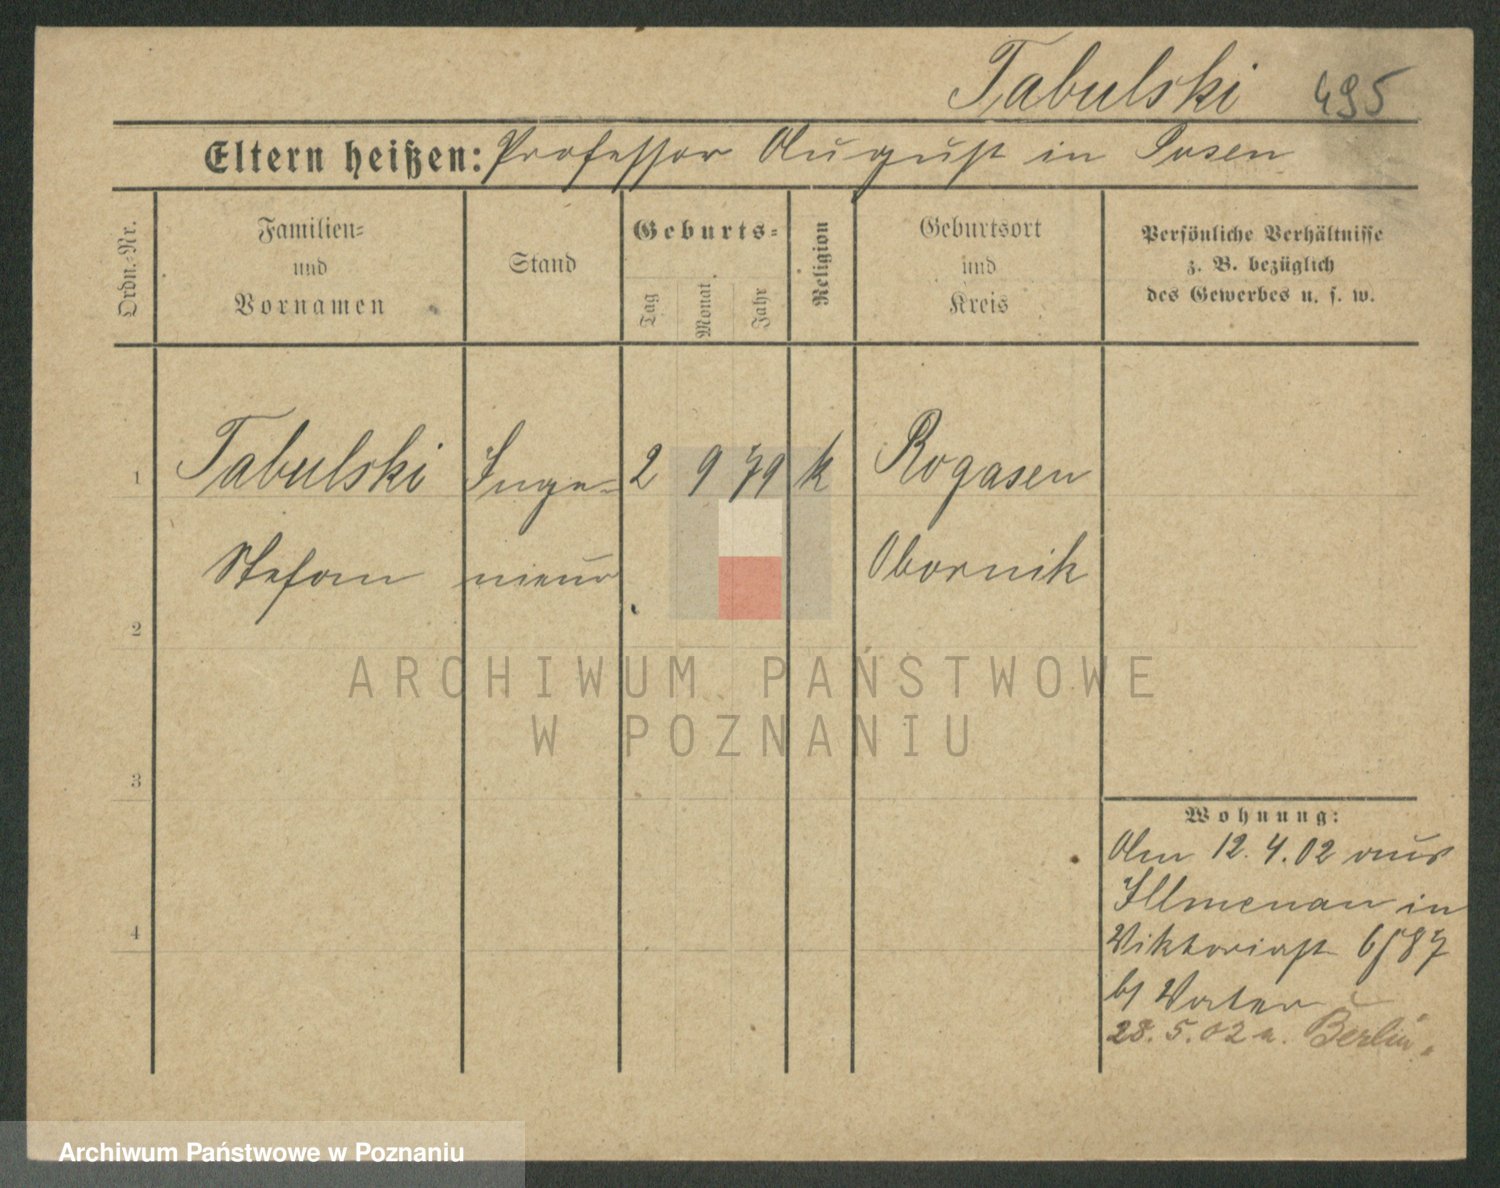 Tabulski 495
Eltern heißen: Professor August in Posen
Ordn.-Nr.
Familien-
und
Vornamen
Stand
Geburts-
Tag
Monat
Jahr
Religion
Geburtsort
und
Kreis
Persönliche Verhältnisse
z. B. bezüglich
des Gewerbes u. s. w.
1 Tabulski Inge- 2 9 79 k Rogasen
Stefan nieur Obornik
2
3
4
ARCHIWUM PAŃSTWOWE
W POZNANIU
Wohnung:
Am 12.4.02 aus
Illmenau in
Viktoriast 6/87
b/ Vater
28.5.02 n. Berlin.
Archiwum Państwowe w Poznaniu